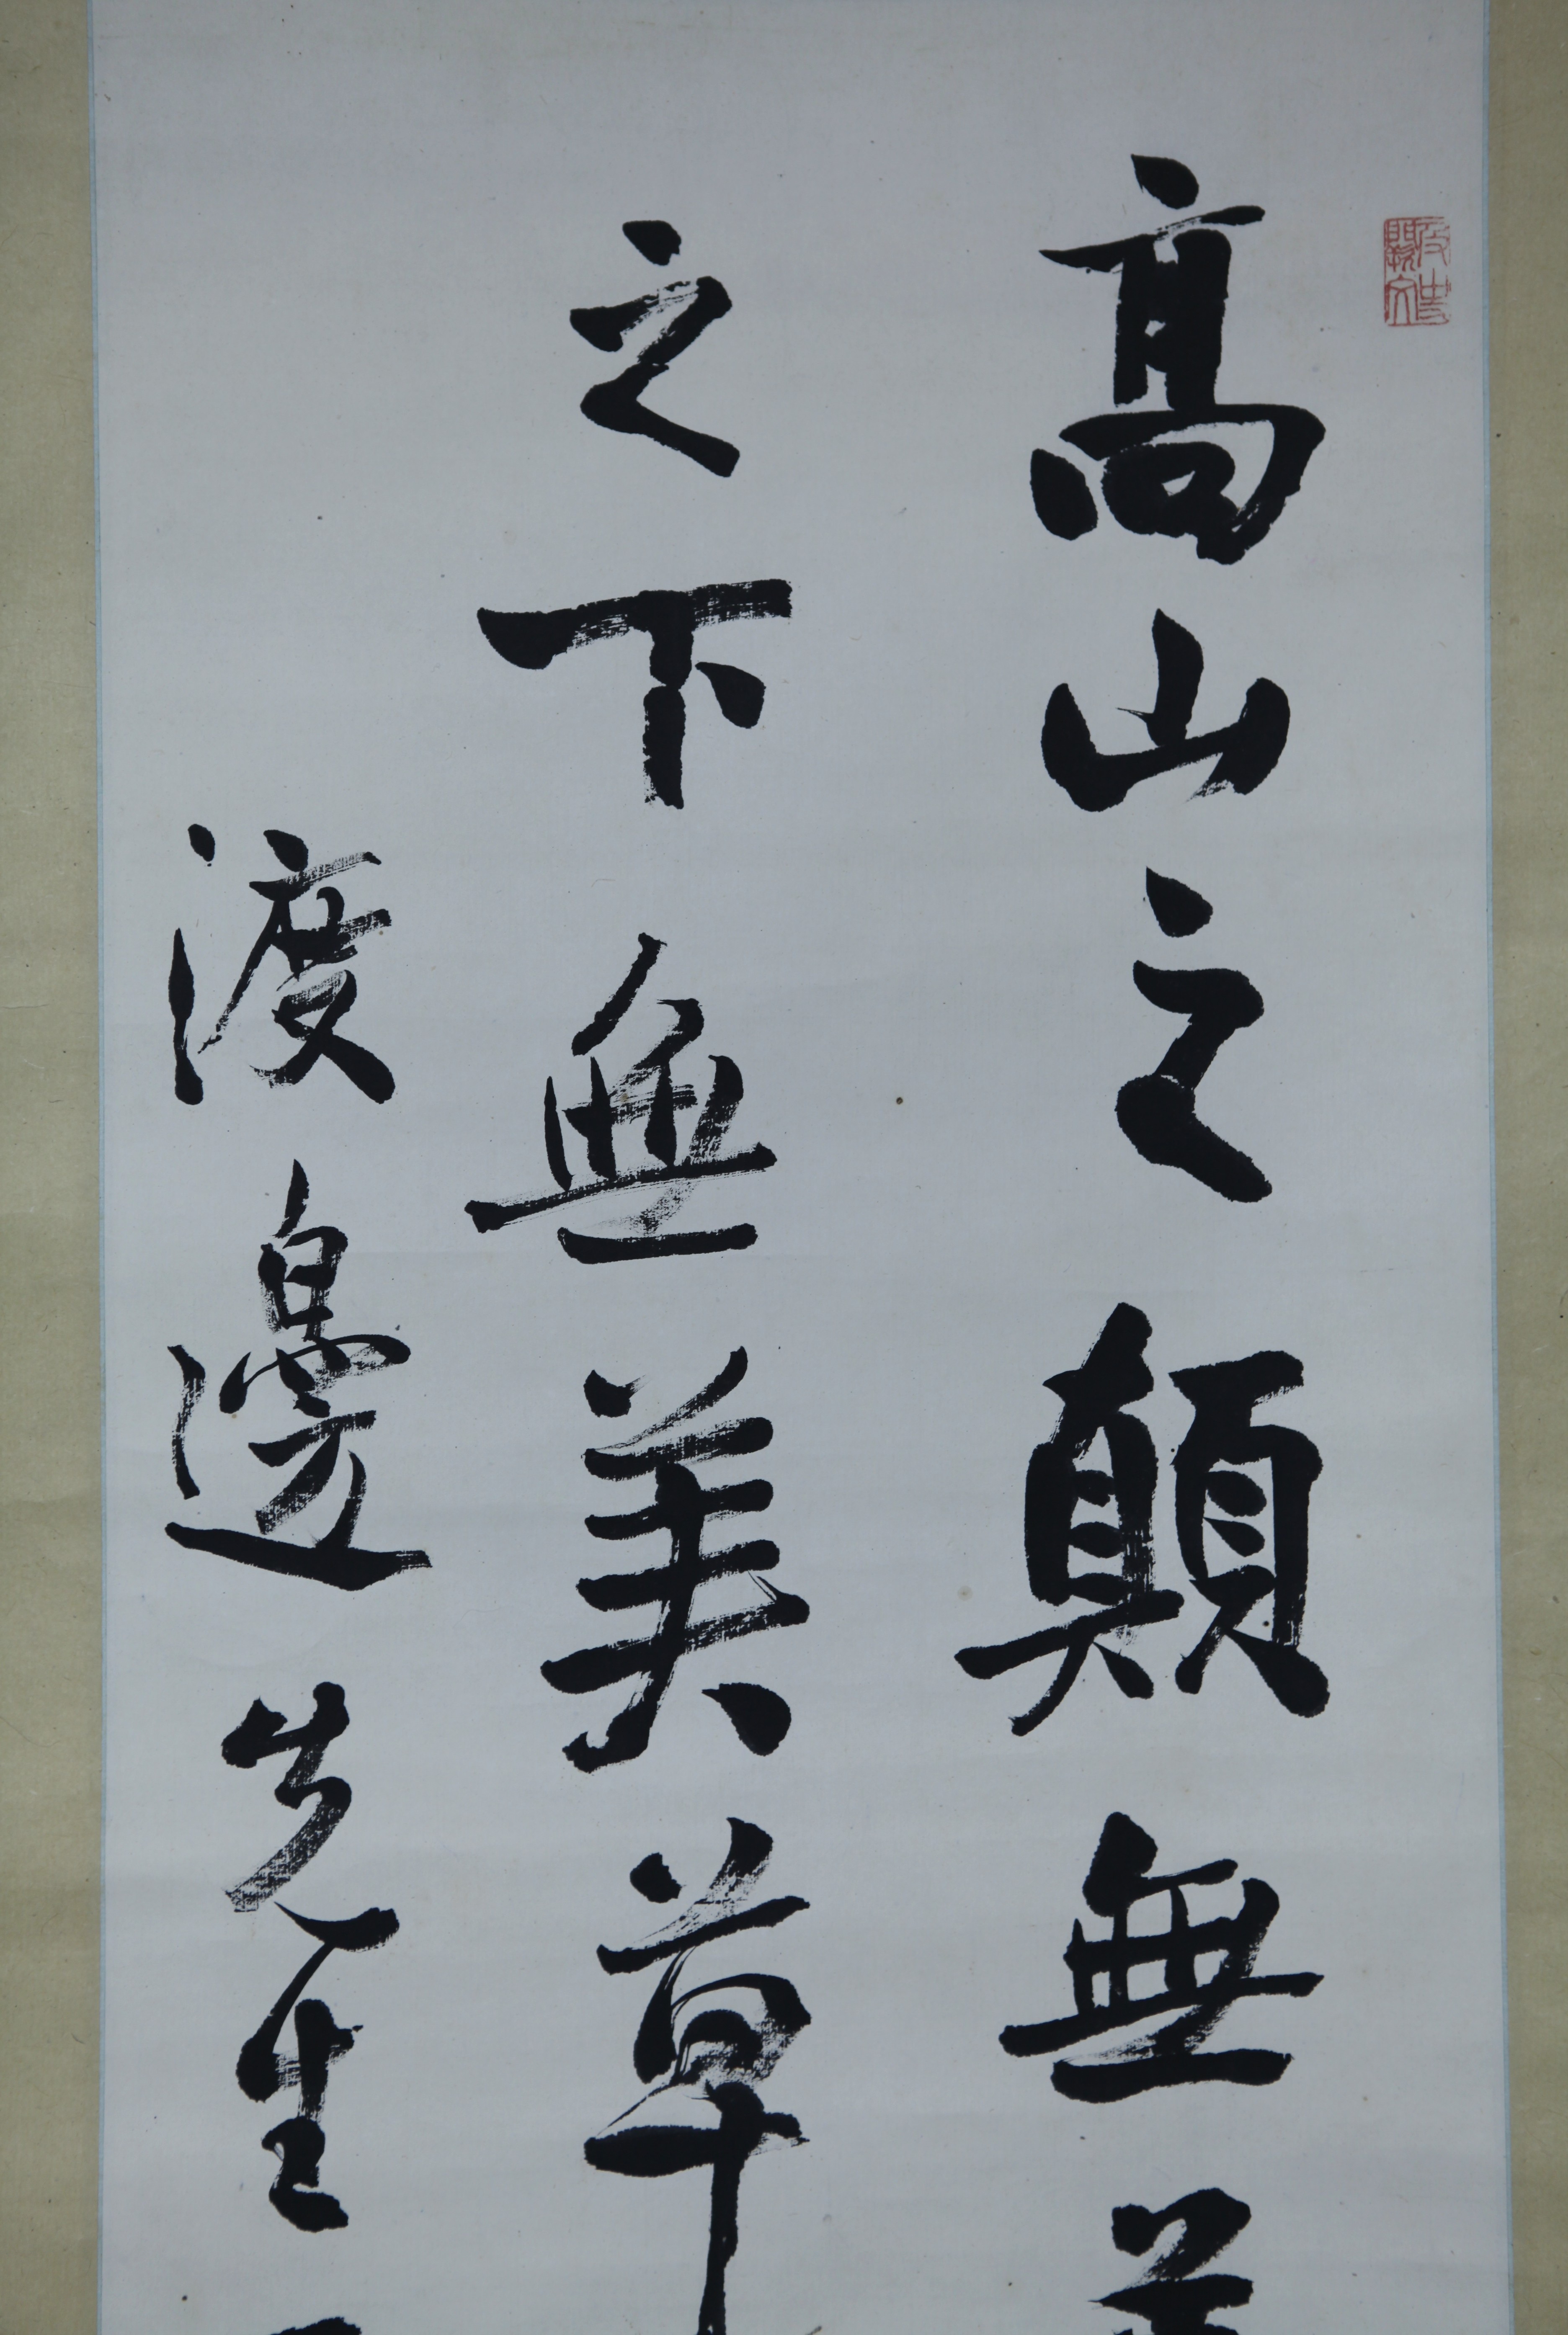 高山之顛無美
之下無美草
渡邊先生